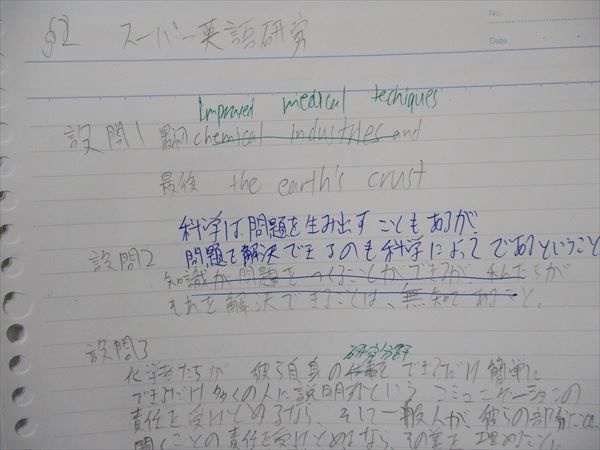 §2 スーパー英語研究
No.
Date
Improved medical techiques
設問1 最初 chemical industries and
最後 the earth's crust
科学は問題を生み出すこともあるが
設問2 問題を解決できるのも科学によってであるということ
知識が問題をつくることができるが、私たちが
それを解決できることは、無知であること。
設問3
研究分野
化学者たちが 彼ら自身の仕事を できるだけ 簡単に
できるだけ 多くの人に説明するという コミュニケーションの
責任を受けとめるなら、そして一般人が、彼らの部分に
聞くことの責任を受けとめるなら、その差を 埋めること